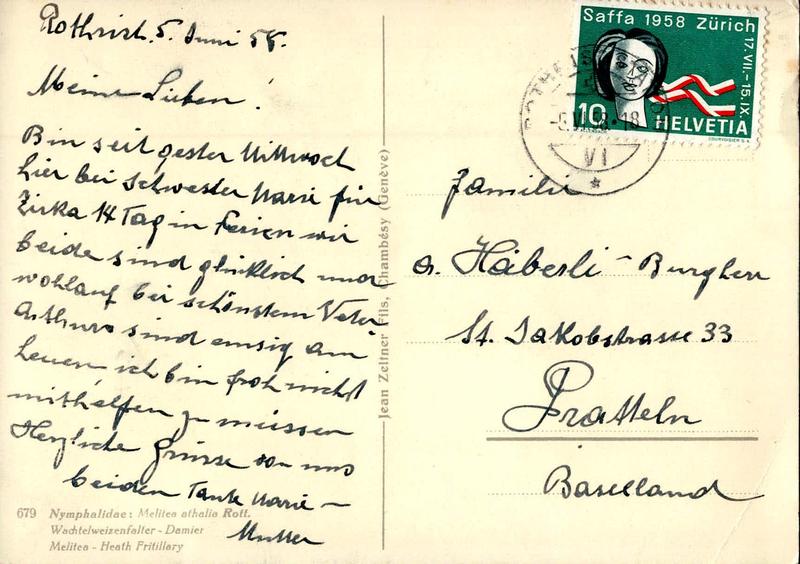 Rothrist. 5. Juni 58.
Meine Lieben!
Bin seit gester Mittwoch
hier bei Schwester Marie für
Zirka 14 Tag in Ferien wir
beide sind glücklich und
wohlauf bei schönstem Veter
Arthurs sind emsig am
heuen ich bin froh nicht
mithelfen zu müssen
Herzliche Grüsse von uns
beiden Tante Marie –
Mutter
679 Nymphalidae: Melitea athalia Rott.
Wachtelweizenfalter - Damier
Melitea - Heath Fritillary
Jean Zeltner Fils, Chambésy (Genève)
Saffa 1958 Zürich
17.VII.-15.IX.
10
HELVETIA
COURVOISIER S.A.
VI
Familie
a. Häberli - Burgherr
St. Jakobstrasse 33
Pratteln
Baselland